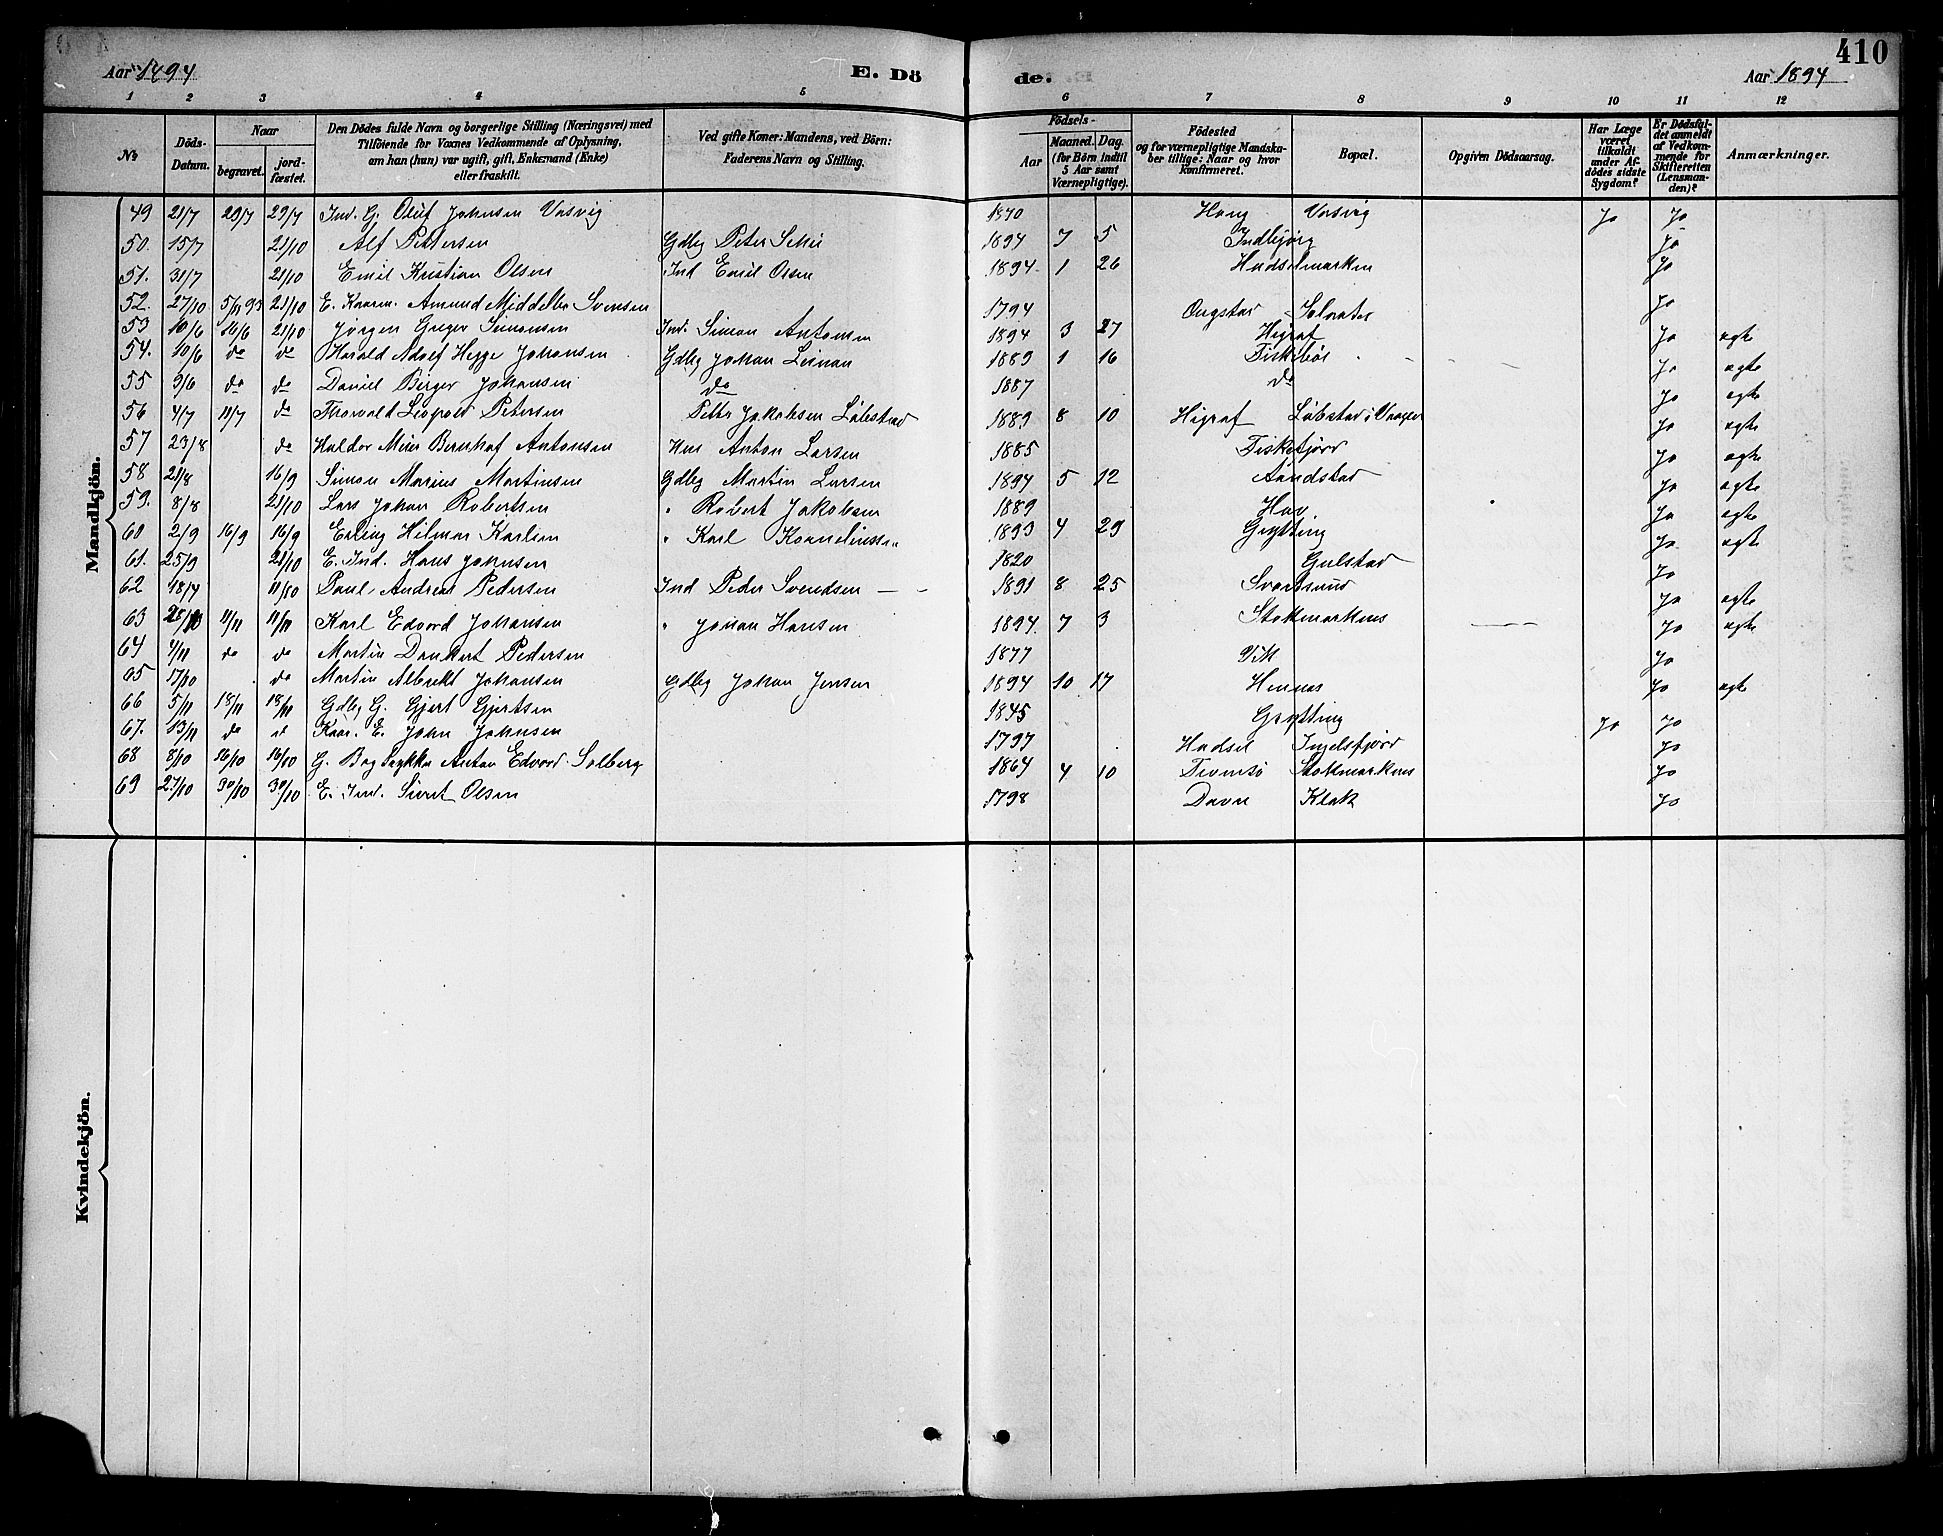 410
Aar 1894 E. Dö de. Aar 1894
1 2 3 4 5 6 7 8 9 10 11 12
No Döds-Datum. Naar begravet. jord-fæstet. Den Dödes fulde Navn og borgerlige Stilling (Næringsvei) med Tilföiende for Voxnes Vedkommende af Oplysning, om han (hun) var ugift, gift, Enkemand (Enke) eller fraskilt. Ved gifte Koner: Mandens, ved Börn: Faderens Navn og Stilling. Födsels- Aar Maaned. Dag. (for Börn indtil 5 Aar samt Værnepligtige). Födested og for værnepligtige Mandska-ber tillige: Naar og hvor konfirmeret. Bopæl. Opgiven Dödsaarsag. Har Læge været tilkaldt under Af-dödes sidste Sygdom? Er Dödsfal-det anmeldt af Vedkom-mende for Skifteretten (Lensman-den)? Anmærkninger.
Mandkjön.
49 21/7 29/7 29/7 Ind. G. Oluf Johnsen Vasvig 1870 Haug Vasvig Jo Jo
50. 15/7 21/10 Alf Pettersen Gdbg Peter 1894 7 5 Indbjörg Jo
51. 31/7 21/10 Emil Kristian Olsen Ind Emil Olsen 1894 1 26 Hadselmarken Jo
52. 27/10 5/11 93 21/10 E. Kaarm. Amund Middelbo Svensen 1794 Jo
53 10/6 16/6 21/10 Jörgen Greger Simonsen Ind. Simon Antonsen 1894 3 27 Higraf Jo egte
54. 10/6 do do Harald Adolf Hegge Johansen Gdbg Johan 1889 1 16 Fiskebøl Jo egte
55 9/6 do do Daniel Birger Johansen do 1887 do Jo egte
56 4/7 11/7 do Thorvald Leopold Petersen Petter Jakobsen Löbstad 1889 8 10 Higraf Löbstad i Vaagen Jo egte
57 23/8 do Haldor Meier Bernhof Antonsen Hm Anton Larsen 1885 Fiskefjord Jo egte
58 21/8 16/9 Simon Marius Martinsen Gdbg Martin Larsen 1894 5 12 Aandstad Jo egte
59. 8/8 21/10 Lars Johan Robertsen " Robert Jakobsen 1889 Hav Jo egte
60 2/9 16/9 16/9 Erling Hilmar Karlsen " Karl Korneliussen 1893 4 29 Grytting Jo egte
61. 25/9 21/10 E. Ind. Hans Johnsen 1820 Gulstad Jo
62 18/7 11/10 Paul Andreas Pedersen Ind Peder Svendsen 1891 8 25 Svartsund Jo egte
63 28/10 11/11 11/11 Karl Edvard Johansen " Johan Hansen 1894 7 3 Stokmarknes Jo egte
64 4/11 do do Martin Dankert Pedersen 1877 Vik Jo
65 17/10 do Martin Albrekt Johansen Gdbg Johan Jensen 1894 10 17 Hennes Jo egte
66 5/11 18/11 18/11 Gdbg G. Gjert Gjertsen 1845 Grytting Jo Jo
67. 13/11 do d Kaar. E. John Johnsen 1797 Hadsel Ingelsfjord Jo
68 8/10 16/10 16/10 G. Bogtrykker Anton Edvard Solberg 1864 4 10 Tromsö Stokmarknes Jo
69 27/10 30/10 30/10 E. Ind. Sivert Olsen 1798 Davne Klak Jo
Kvindekjön.